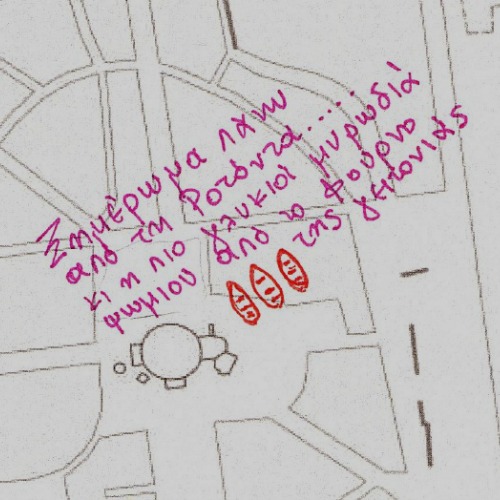 Ξημέρωμα πάνω
από τη Ροτόντα.....
κι η πιο γλυκιά μυρωδιά
ψωμιού από το φούρνο
της γειτονιάς